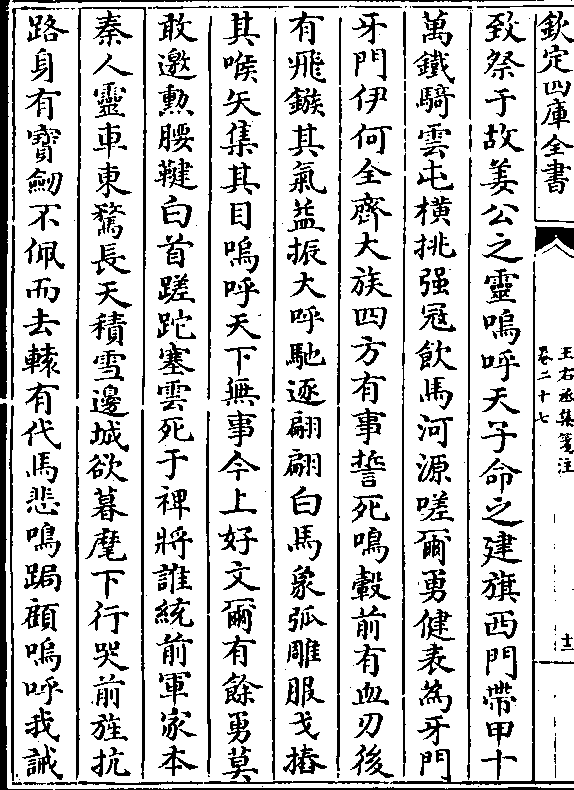 欽定四庫全書
王右丞集箋注
卷二十七
十二
致祭于故姜公之靈嗚呼天子命之建旗西門帶甲十
萬鐵騎雲屯横挑强冦飲馬河源嗟爾勇健表為牙門
牙門伊何全齊大族四方有事誓死鳴轂前有血刃後
有飛鏃其氣益振大呼馳逐翩翩白馬象弧雕服戈摏
其喉矢集其目嗚呼天下無事今上好文爾有餘勇莫
敢邀勲腰鞬白首蹉跎塞雲死于禆將誰統前軍家本
秦人靈車東騖長天積雪邊城欲暮麾下行哭前旌抗
路身有寶劒不佩而去轅有代馬悲鳴跼顧嗚呼我誠